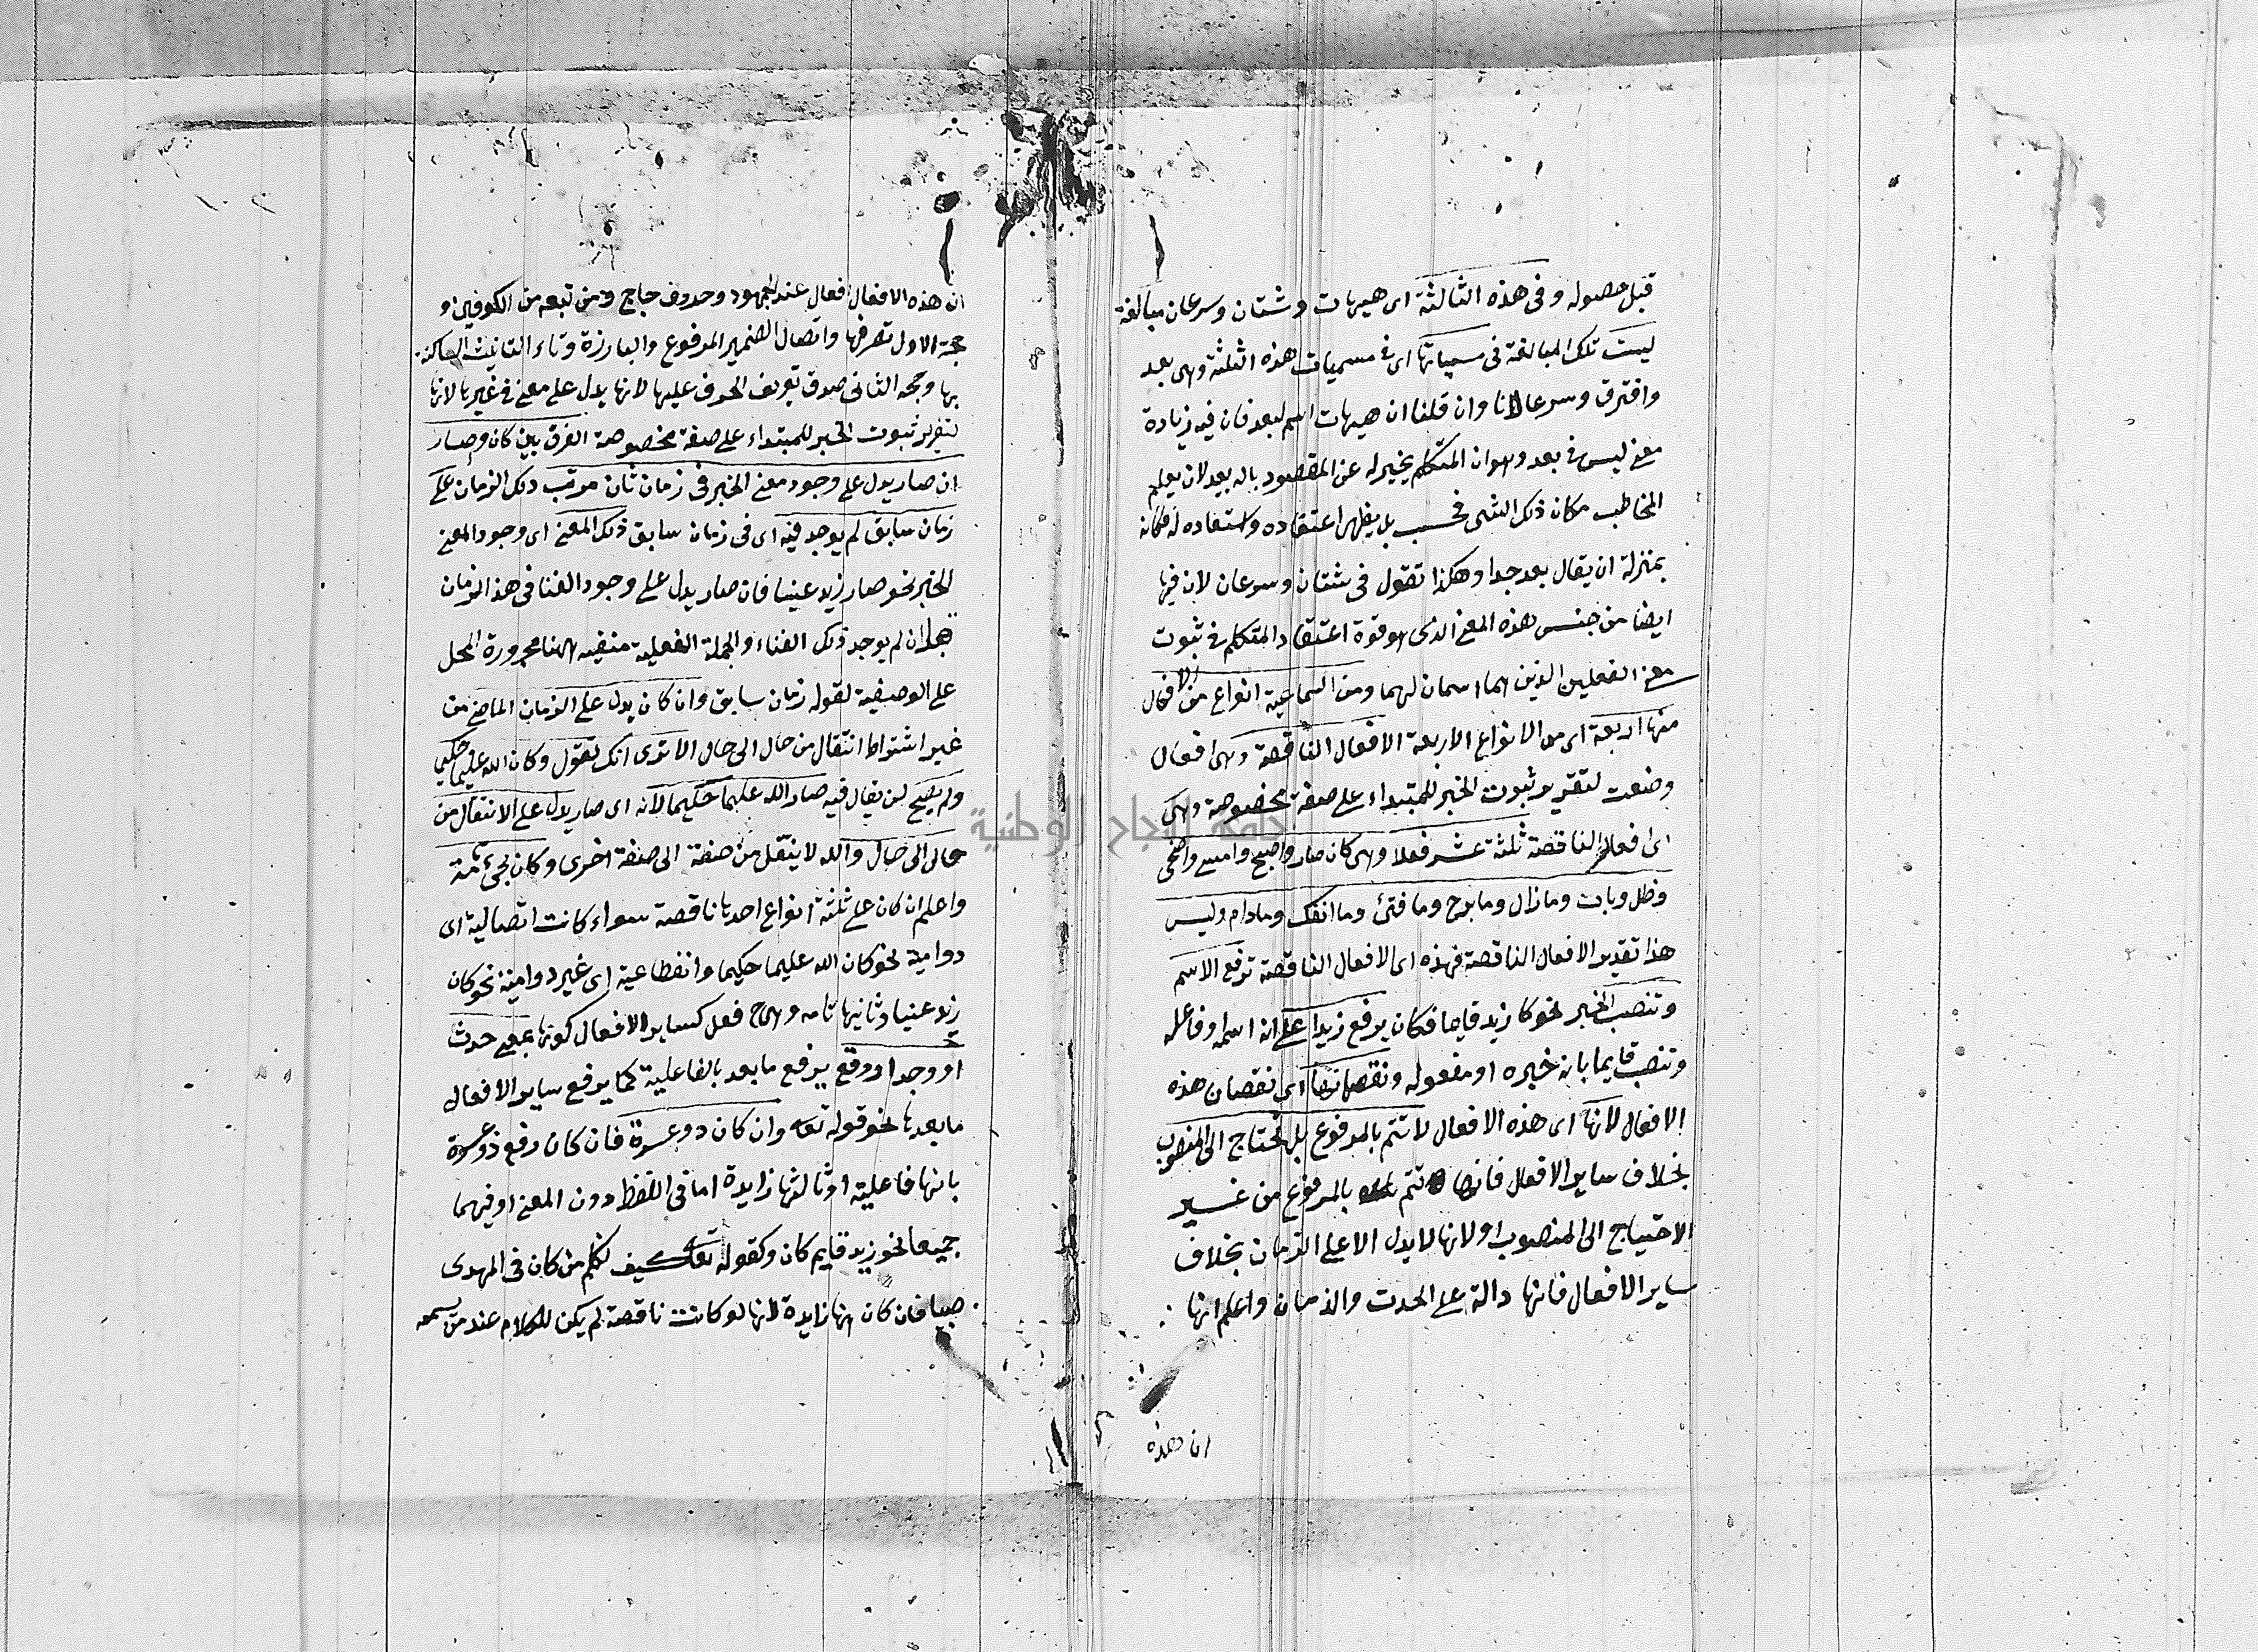 قبل حصوله وفى هذه الثالثة اى هيهات وشتان وسرعان مبالغة
ليست تلك المبالغة فى مسمياتها اى فى مسميات هذه الثلثة وهى بعد
وافترق وسرعا لانا وان قلنا ان هيهات اسم لبعد فان فيه زيادة
معنى ليس فى بعد وهو ان المتكلم يخبر له عن المقصود باله بعيد لان يعلم
المخاطب مكان ذلك الشى فحسب بل يظهر اعتقاده واستبعاده له فكانه
بمنزلة ان يقال بعد جدا وهكذا تقول فى شتان وسرعان لان فيها
ايضا من جنس هذه المعنى الذى هو قوة اعتقاد المتكلم فى ثبوت
معنى الفعلين الذين هما اسمان لهما ومن السماعية انواع من الافعال
منها اربعة اى من الانواع الاربعة الافعال الناقصة وهى افعال
وضعت لتقرير ثبوت الخبر للمبتداء على صفة مخصوصة وهى
اى افعال الناقصة ثلثة عشر فعلا وهى كان صار واصبح وامسى واضحى
وظل وبات ومازال ومابرح ومافتئ وماانفك ومادام وليس
هذا تقدير الافعال الناقصة فهذه اى الافعال الناقصة ترفع الاسم
وتنصب الخبر نحو كا زيد قايما فكان يرفع زيدا على انه اسمه وفاعله
وتنصب قايما بانه خبره او مفعوله ونقصانها اى نقصان هذه
الافعال لانها اى هذه الافعال لا تتم بالمرفوع بل تحتاج الى المنصوب
بخلاف ساير الافعال فانها تتم بالمرفوع من غير
الاحتياج الى المنصوب او لانها لا يدل الا على الزمان بخلاف
ساير الافعال فانها دالة على الحدث والزمان واعلم انها
ان هذه
ان هذه الافعال افعال عند الجمهور وحروف حاج ومن تبعه من الكوفين و
حجة الاول تصرفها واتصال الضمير المرفوع والبارزة وتاء التانيث الساكنة
بها وحجه الثانى صدق تعريف الحرف عليها لانها يدل على معنى فى غيرها لانها
لتقرير ثبوت الخبر للمبتداء على صفة مخصوصة الفرق بين كان وصار
ان صار يدل على وجود معنى الخبر فى زمان ثان مرتب ذلك الزمان على
زمان سابق لم يوجد فيه اى فى زمان سابق ذلك المعنى اى وجود المعنى
الخبر نحو صار زيد غنيا فان صار يدل على وجود الغنا فى هذا الزمان
بعد ان لم يوجد ذلك الغناء والجملة الفعلية منفيه ههنا مجرورة المحل
على الوصفية لقوله زمان سابق وان كان يدل على الزمان الماضى من
غير اشتراط انتقال من حال الى حال الا ترى انك تقول وكان الله عليما حكيما
ولم يصح لن يقال فيه صار الله عليما حكيما لانه اى صار يدل على الانتقال من
حال الى حال والله لا ينتقل من صفة الى صفة اخرى وكان يجئ تامة
واعلم ان كان على ثلثة انواع احدها ناقصة سواء كانت اتصالية اى
دوامية نحو كان الله عليما حكيما وانقطاعية اى غير دوامية نحو كان
زيد غنيا وثانيها تامه وهى ح فعل كساير الافعال كونها بمعنى حدث
او وجد او وقع يرفع مابعد بالفاعلية كما يرفع ساير الافعال
مابعدها نحو قوله تعه وان كان ذو عسرة فان كان رفع ذو عسرة
بانها فاعلية او ثالثها زايدة اما فى اللفظ دون المعنى او فيهما
جميعا نحو زيد قايم كان وكقوله تعه كيف نكلم من كان فى المهدى
صبيا فان كان ههنا زايدة لانها لو كانت ناقصة لم يكن للكلام عند من يسمعه
جامعة النجاح الوطنية